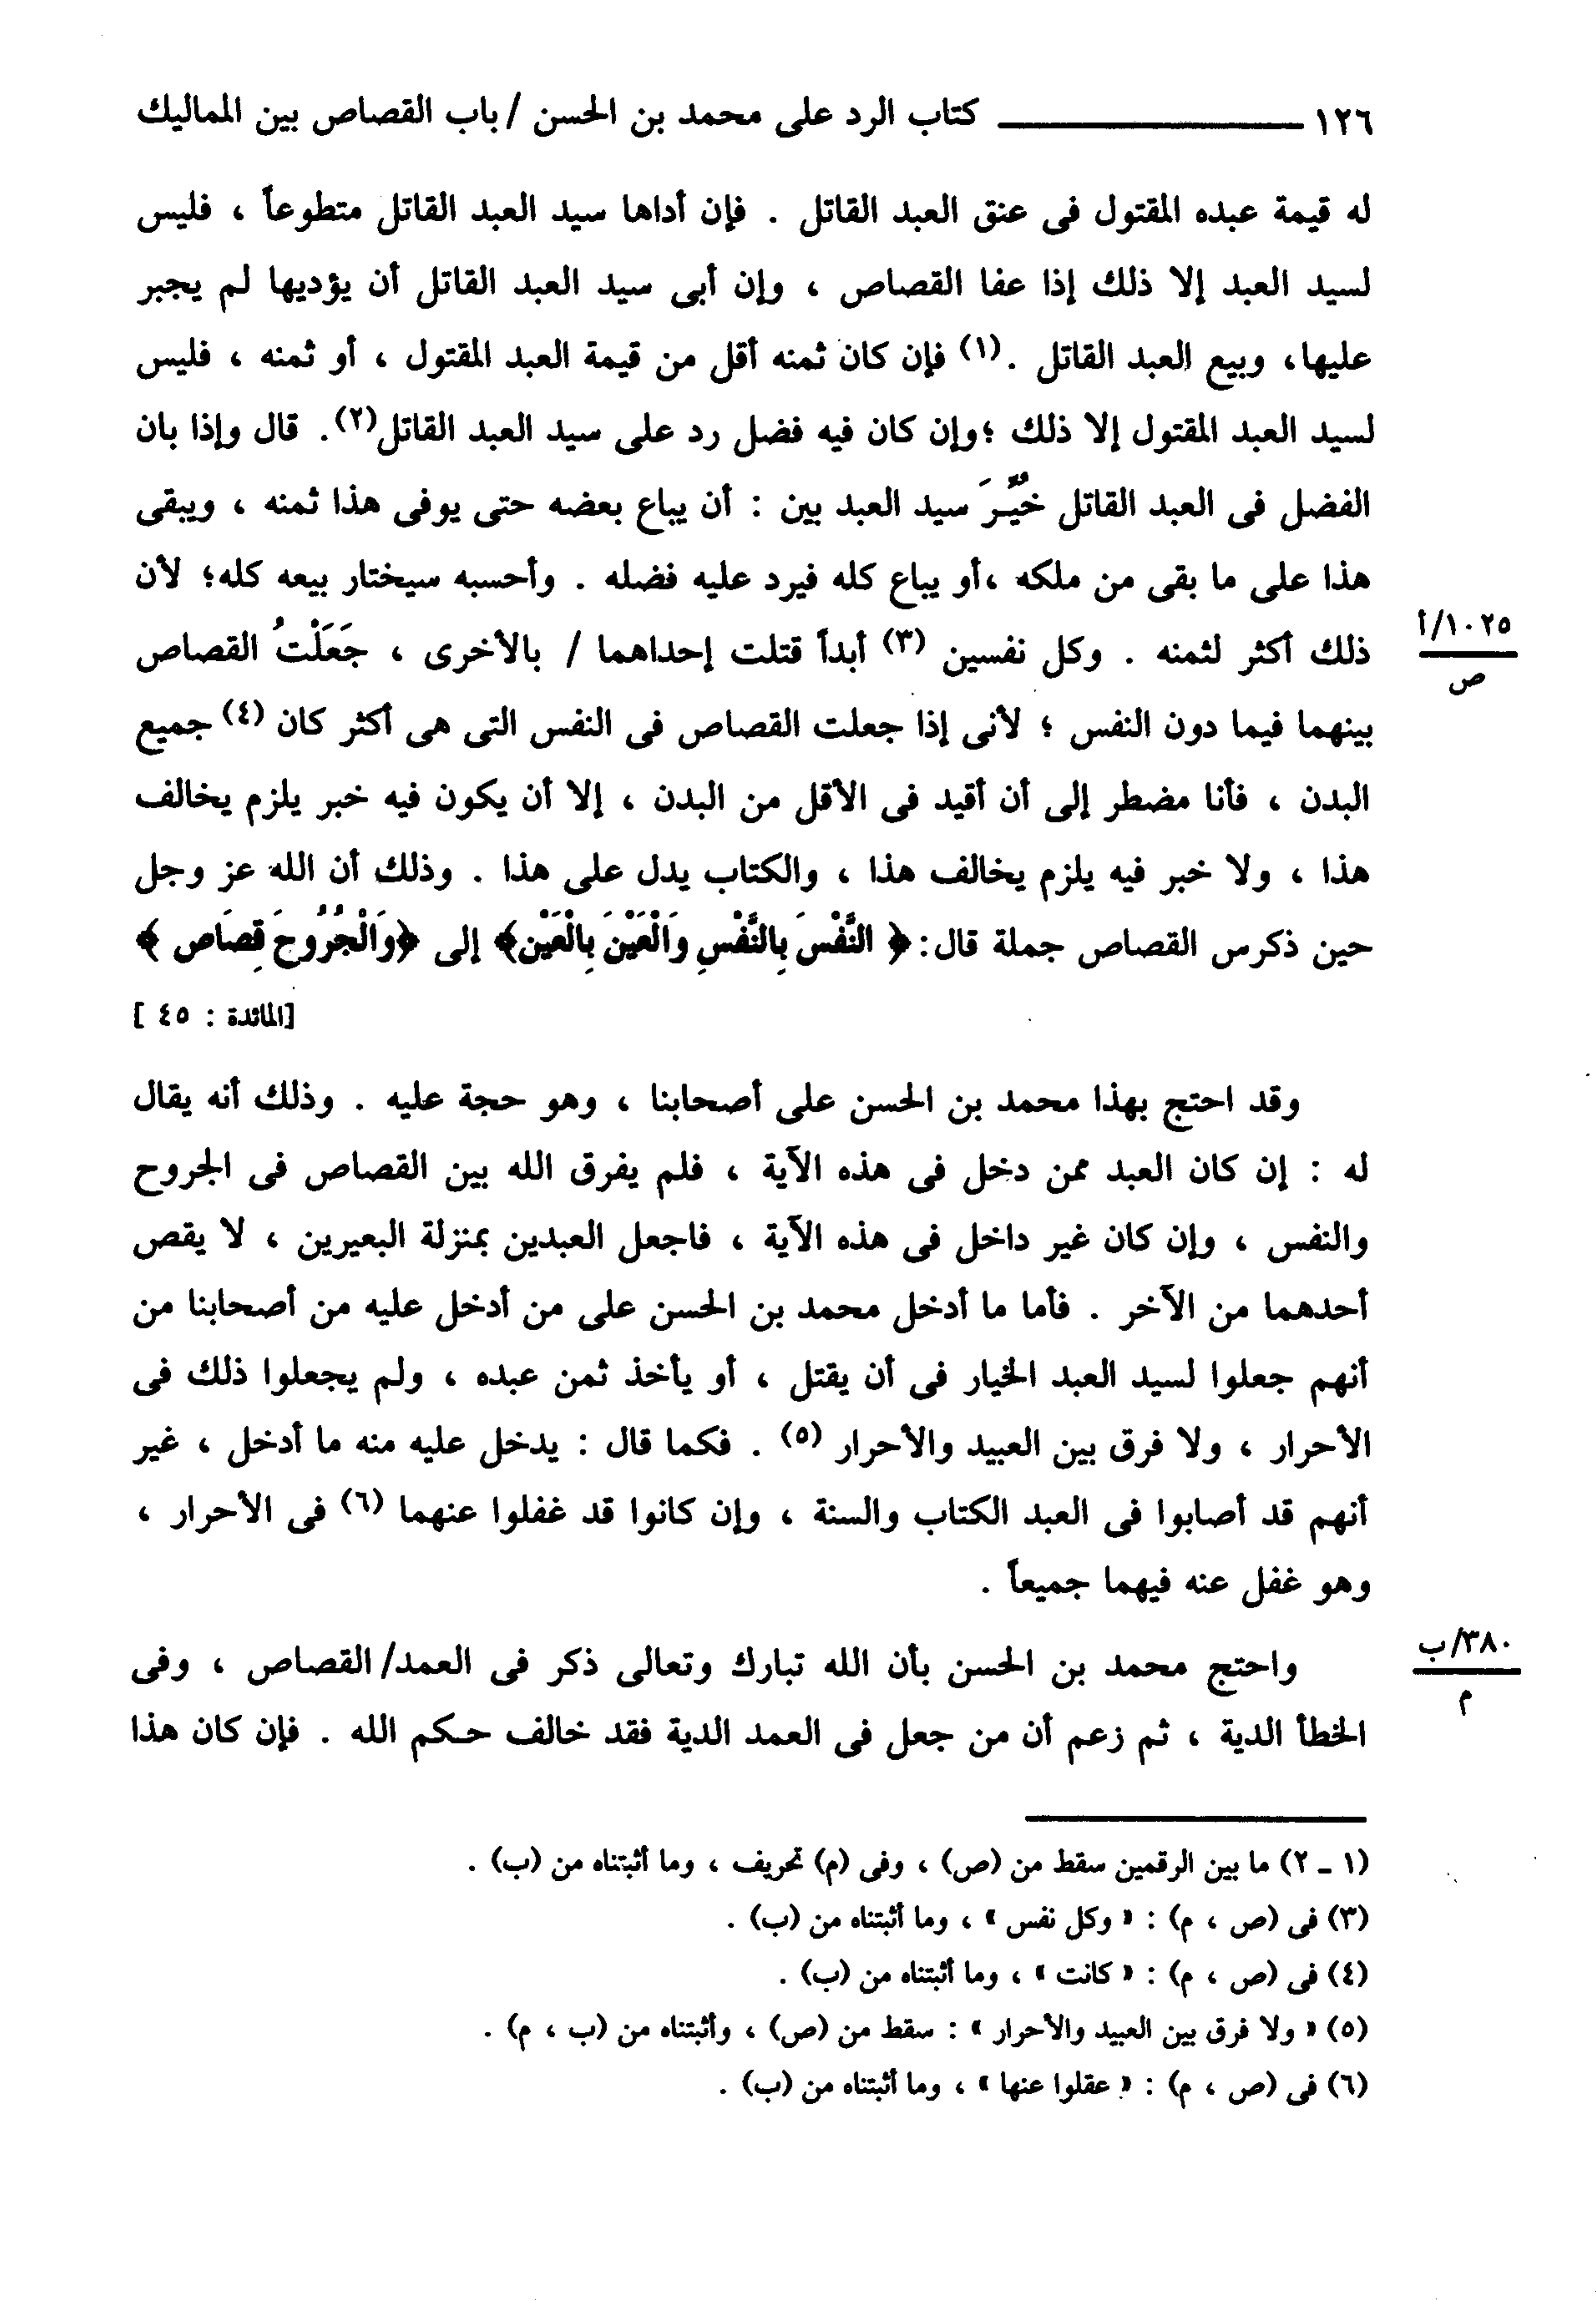 ١٢٦ ـــــــــــــــــ كتاب الرد على محمد بن الحسن / باب القصاص بين المماليك
له قيمة عبده المقتول فى عنق العبد القاتل . فإن أداها سيد العبد القاتل متطوعاً ، فليس
لسيد العبد إلا ذلك إذا عفا القصاص ، وإن أبى سيد العبد القاتل أن يؤديها لم يجبر
عليها، وبيع العبد القاتل .(١) فإن كان ثمنه أقل من قيمة العبد المقتول ، أو ثمنه ، فليس
لسيد العبد المقتول إلا ذلك ؛وإن كان فيه فضل رد على سيد العبد القاتل(٢). قال وإذا بان
الفضل فى العبد القاتل خُيِّـرَ سيد العبد بين : أن يباع بعضه حتى يوفى هذا ثمنه ، ويبقى
هذا على ما بقى من ملكه ،أو يباع كله فيرد عليه فضله . وأحسبه سيختار بيعه كله؛ لأن
ذلك أكثر لثمنه . وكل نفسين (٣) أبداً قتلت إحداهما / بالأخرى ، جَعَلْتُ القصاص
١٠٢٥/أ
ص
بينهما فيما دون النفس ؛ لأنى إذا جعلت القصاص فى النفس التى هى أكثر كان (٤) جميع
البدن ، فأنا مضطر إلى أن أقيد فى الأقل من البدن ، إلا أن يكون فيه خبر يلزم يخالف
هذا ، ولا خبر فيه يلزم يخالف هذا ، والكتاب يدل على هذا . وذلك أن الله عز وجل
حين ذكرس القصاص جملة قال: ﴿ النَّفْسَ بِالنَّفْسِ وَالْعَيْنَ بِالْعَيْنِ﴾ إلى ﴿وَالْجُرُوحَ قِصَاص ﴾
[المائدة : ٤٥ ]
وقد احتج بهذا محمد بن الحسن على أصحابنا ، وهو حجة عليه . وذلك أنه يقال
له : إن كان العبد ممن دخل فى هذه الآية ، فلم يفرق الله بين القصاص فى الجروح
والنفس ، وإن كان غير داخل فى هذه الآية ، فاجعل العبدين بمنزلة البعيرين ، لا يقص
أحدهما من الآخر . فأما ما أدخل محمد بن الحسن على من أدخل عليه من أصحابنا من
أنهم جعلوا لسيد العبد الخيار فى أن يقتل ، أو يأخذ ثمن عبده ، ولم يجعلوا ذلك فى
الأحرار ، ولا فرق بين العبيد والأحرار (٥) . فكما قال : يدخل عليه منه ما أدخل ، غير
أنهم قد أصابوا فى العبد الكتاب والسنة ، وإن كانوا قد غفلوا عنهما (٦) فى الأحرار ،
وهو غفل عنه فيهما جميعاً .
واحتج محمد بن الحسن بأن الله تبارك وتعالى ذكر فى العمد/ القصاص ، وفى
٣٨٠/ب
م
الخطأ الدية ، ثم زعم أن من جعل فى العمد الدية فقد خالف حـكم الله . فإن كان هذا
(١ ـ ٢) ما بين الرقمين سقط من (ص) ، وفى (م) تحريف ، وما أثبتناه من (ب) .
(٣) فى (ص ، م) : « وكل نفس » ، وما أثبتناه من (ب) .
(٤) فى (ص ، م) : « كانت » ، وما أثبتناه من (ب) .
(٥) « ولا فرق بين العبيد والأحرار » : سقط من (ص) ، وأثبتناه من (ب ، م) .
(٦) فى (ص ، م) : « عقلوا عنها » ، وما أثبتناه من (ب) .